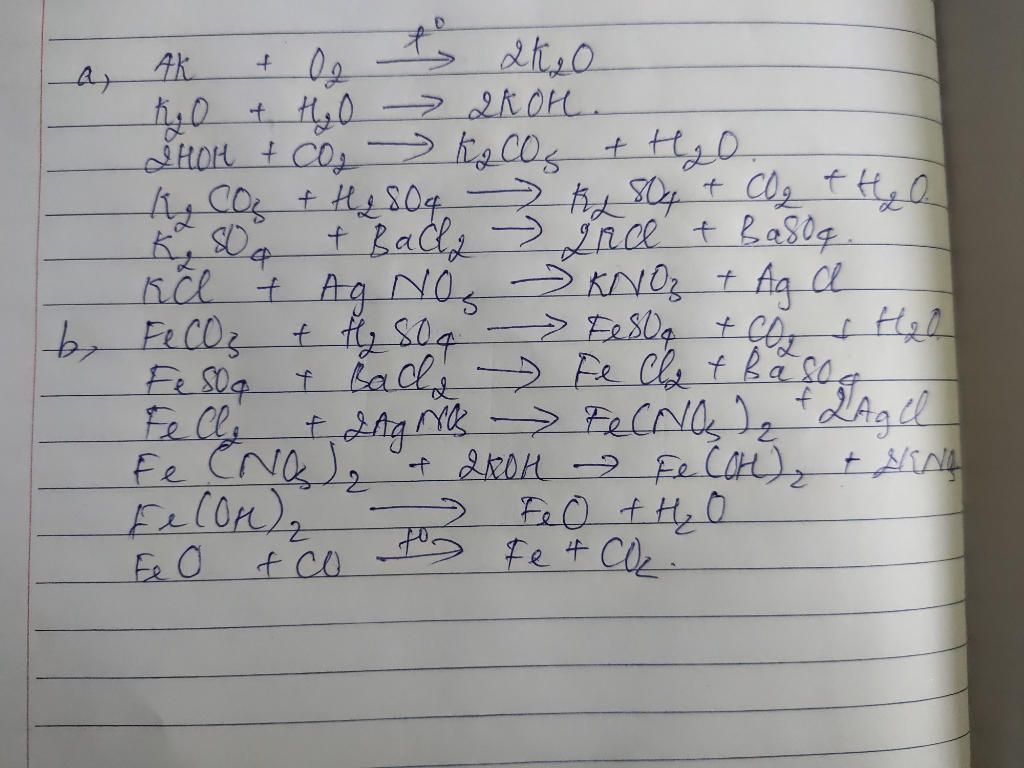 a, 4K + O₂ —t⁰→ 2K₂O
K₂O + H₂O → 2KOH.
2HOH + CO₂ → K₂CO₃ + H₂O.
K₂CO₃ + H₂SO₄ → K₂SO₄ + CO₂ + H₂O.
K₂SO₄ + BaCl₂ → 2KCl + BaSO₄.
KCl + AgNO₃ → KNO₃ + AgCl
b, FeCO₃ + H₂SO₄ → FeSO₄ + CO₂ + H₂O
FeSO₄ + BaCl₂ → FeCl₂ + BaSO₄
FeCl₂ + 2AgNO₃ → Fe(NO₃)₂ + 2AgCl
Fe(NO₃)₂ + 2KOH → Fe(OH)₂ + 2KNO₃
Fe(OH)₂ → FeO + H₂O
FeO + CO —t⁰→ Fe + CO₂.